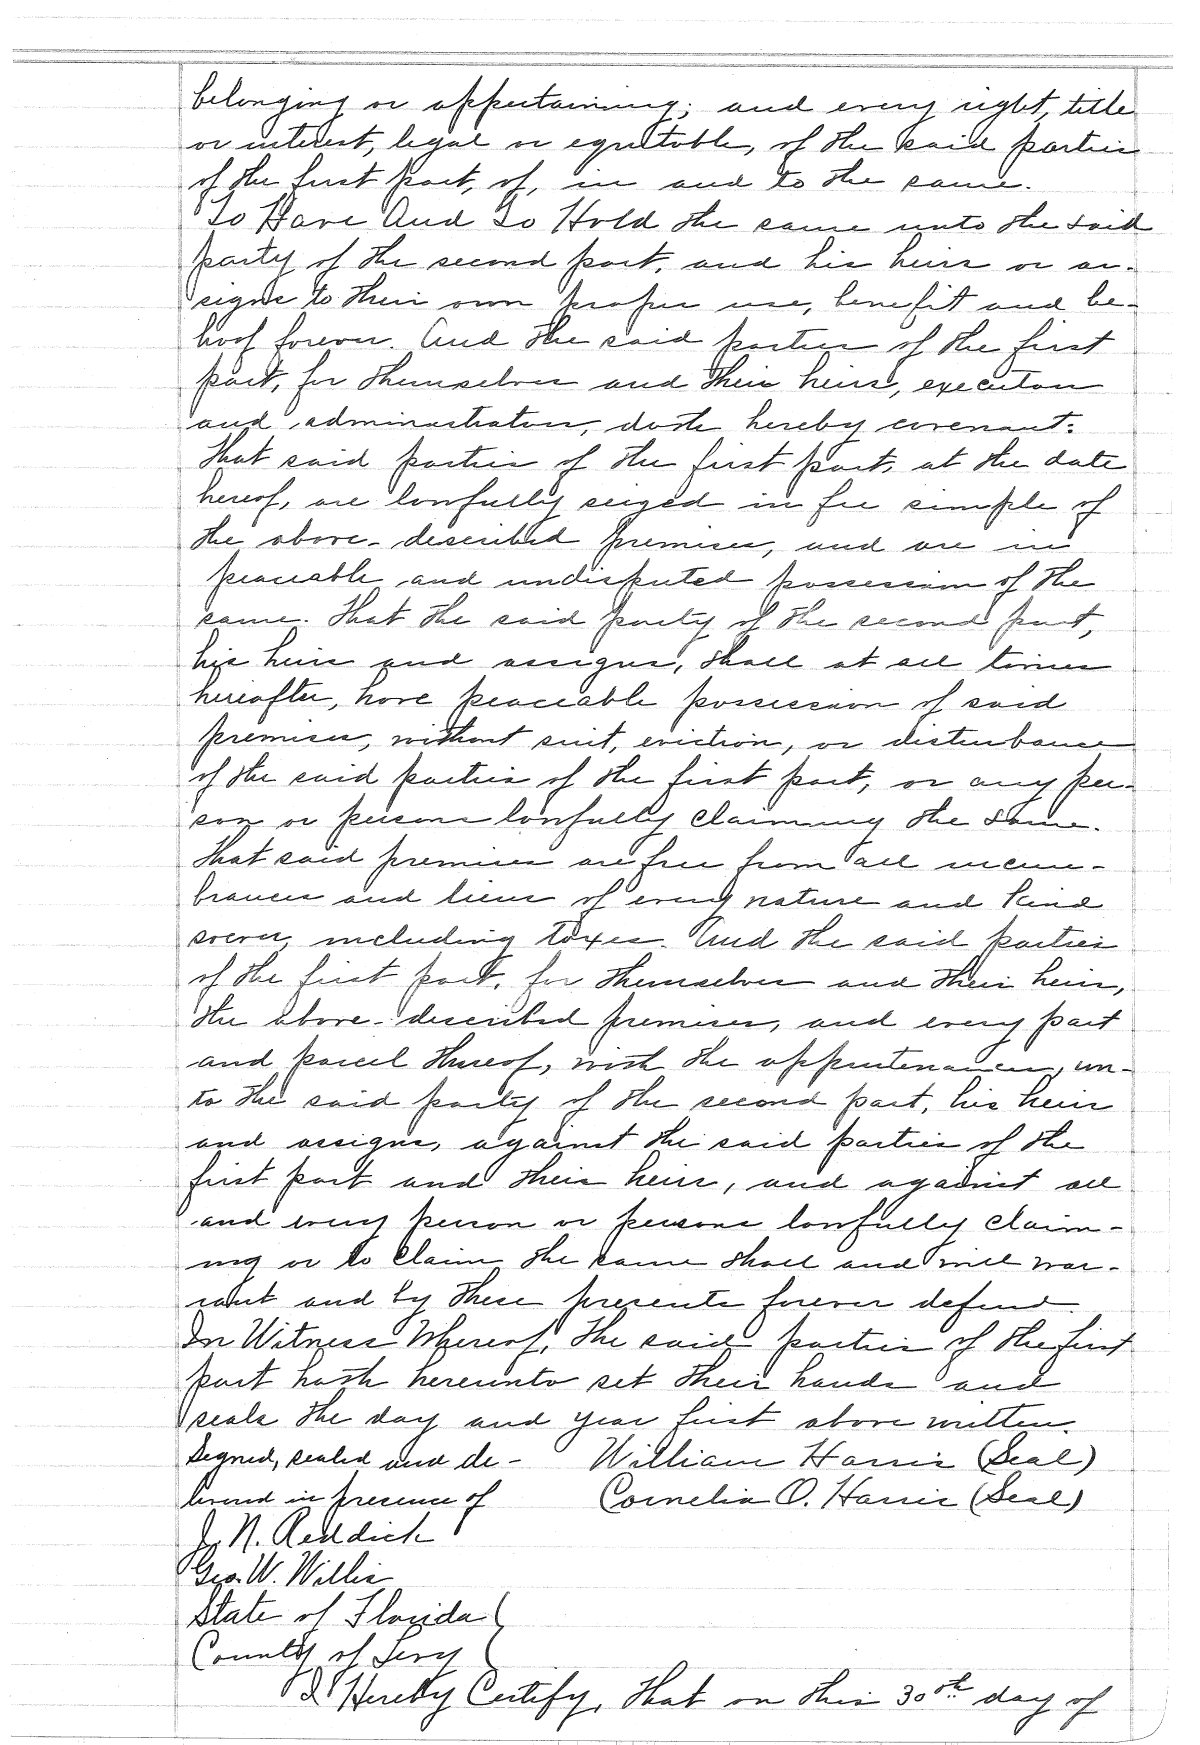 belonging or appertaining; and every right, title
or interest, legal or equitable, of the said parties
of the first part, of, in and to the same.
To Have And To Hold the same unto the said
party of the second part, and his heirs or as-
signs to their own proper use, benefit and be-
hoof forever. And the said parties of the first
part, for themselves and their heirs, executors
and administrators, doth hereby covenant:
That said parties of the first part, at the date
hereof, are lawfully seized in fee simple of
the above-described premises, and are in
peaceable and undisputed possession of the
same. That the said party of the second part,
his heirs and assigns, shall at all times
hereafter, have peaceable possession of said
premises, without suit, eviction, or disturbance
of the said parties of the first part, or any per-
son or persons lawfully claiming the same.
That said premises are free from all incum-
brances and liens of every nature and kind
soever, including taxes. And the said parties
of the first part, for themselves and their heirs,
the above-described premises, and every part
and parcel thereof, with the appurtenances, un-
to the said party of the second part, his heirs
and assigns, against the said parties of the
first part and their heirs, and against all
and every person or persons lawfully claim-
ing or to claim the same shall and will war-
rant and by these presents forever defend.
In Witness Whereof, the said parties of the first
part hath hereunto set their hands and
seals the day and year first above written.
Signed, sealed and de- William Harris (Seal)
livered in presence of Cornelia O. Harris (Seal)
J. N. Reddick
Geo. W. Willis
State of Florida (
County of Levy (
I Hereby Certify, That on this 30th day of